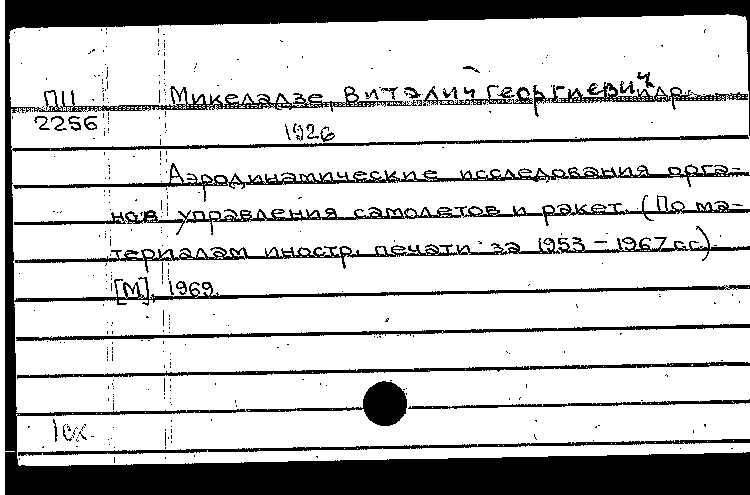 ПII Микеладзе, Виталич Георгиевич и др.
2256 1926
Аэродинамические исследования орга-
нов управления самолетов и ракет. (По ма-
териалам иностр. печати за 1953 – 1967 гг.)
[М], 1969.